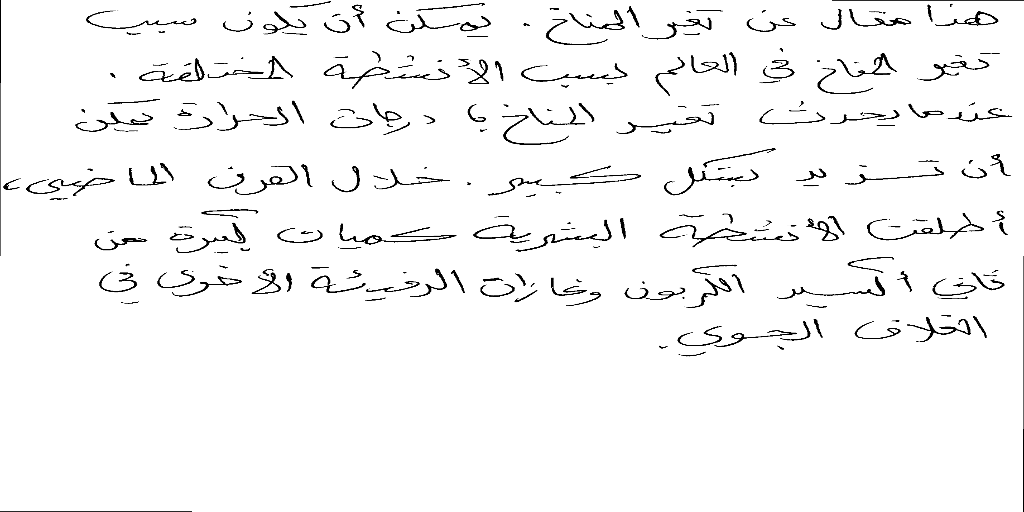 هنا مقال عن تغير المناخ. يمكن أن يكون سبب
تغير المناخ في العالم بسبب الأنشطة المختلفة.
عندما يحدث تغير المناخ، درجات الحرارة يمكن
أن تزيد بشكل كبير. خلال القرن الماضي،
أطلقت الأنشطة البشرية كميات كبيرة من
ثاني أكسيد الكربون وغازات الدفيئة الأخرى في
الغلاف الجوي.